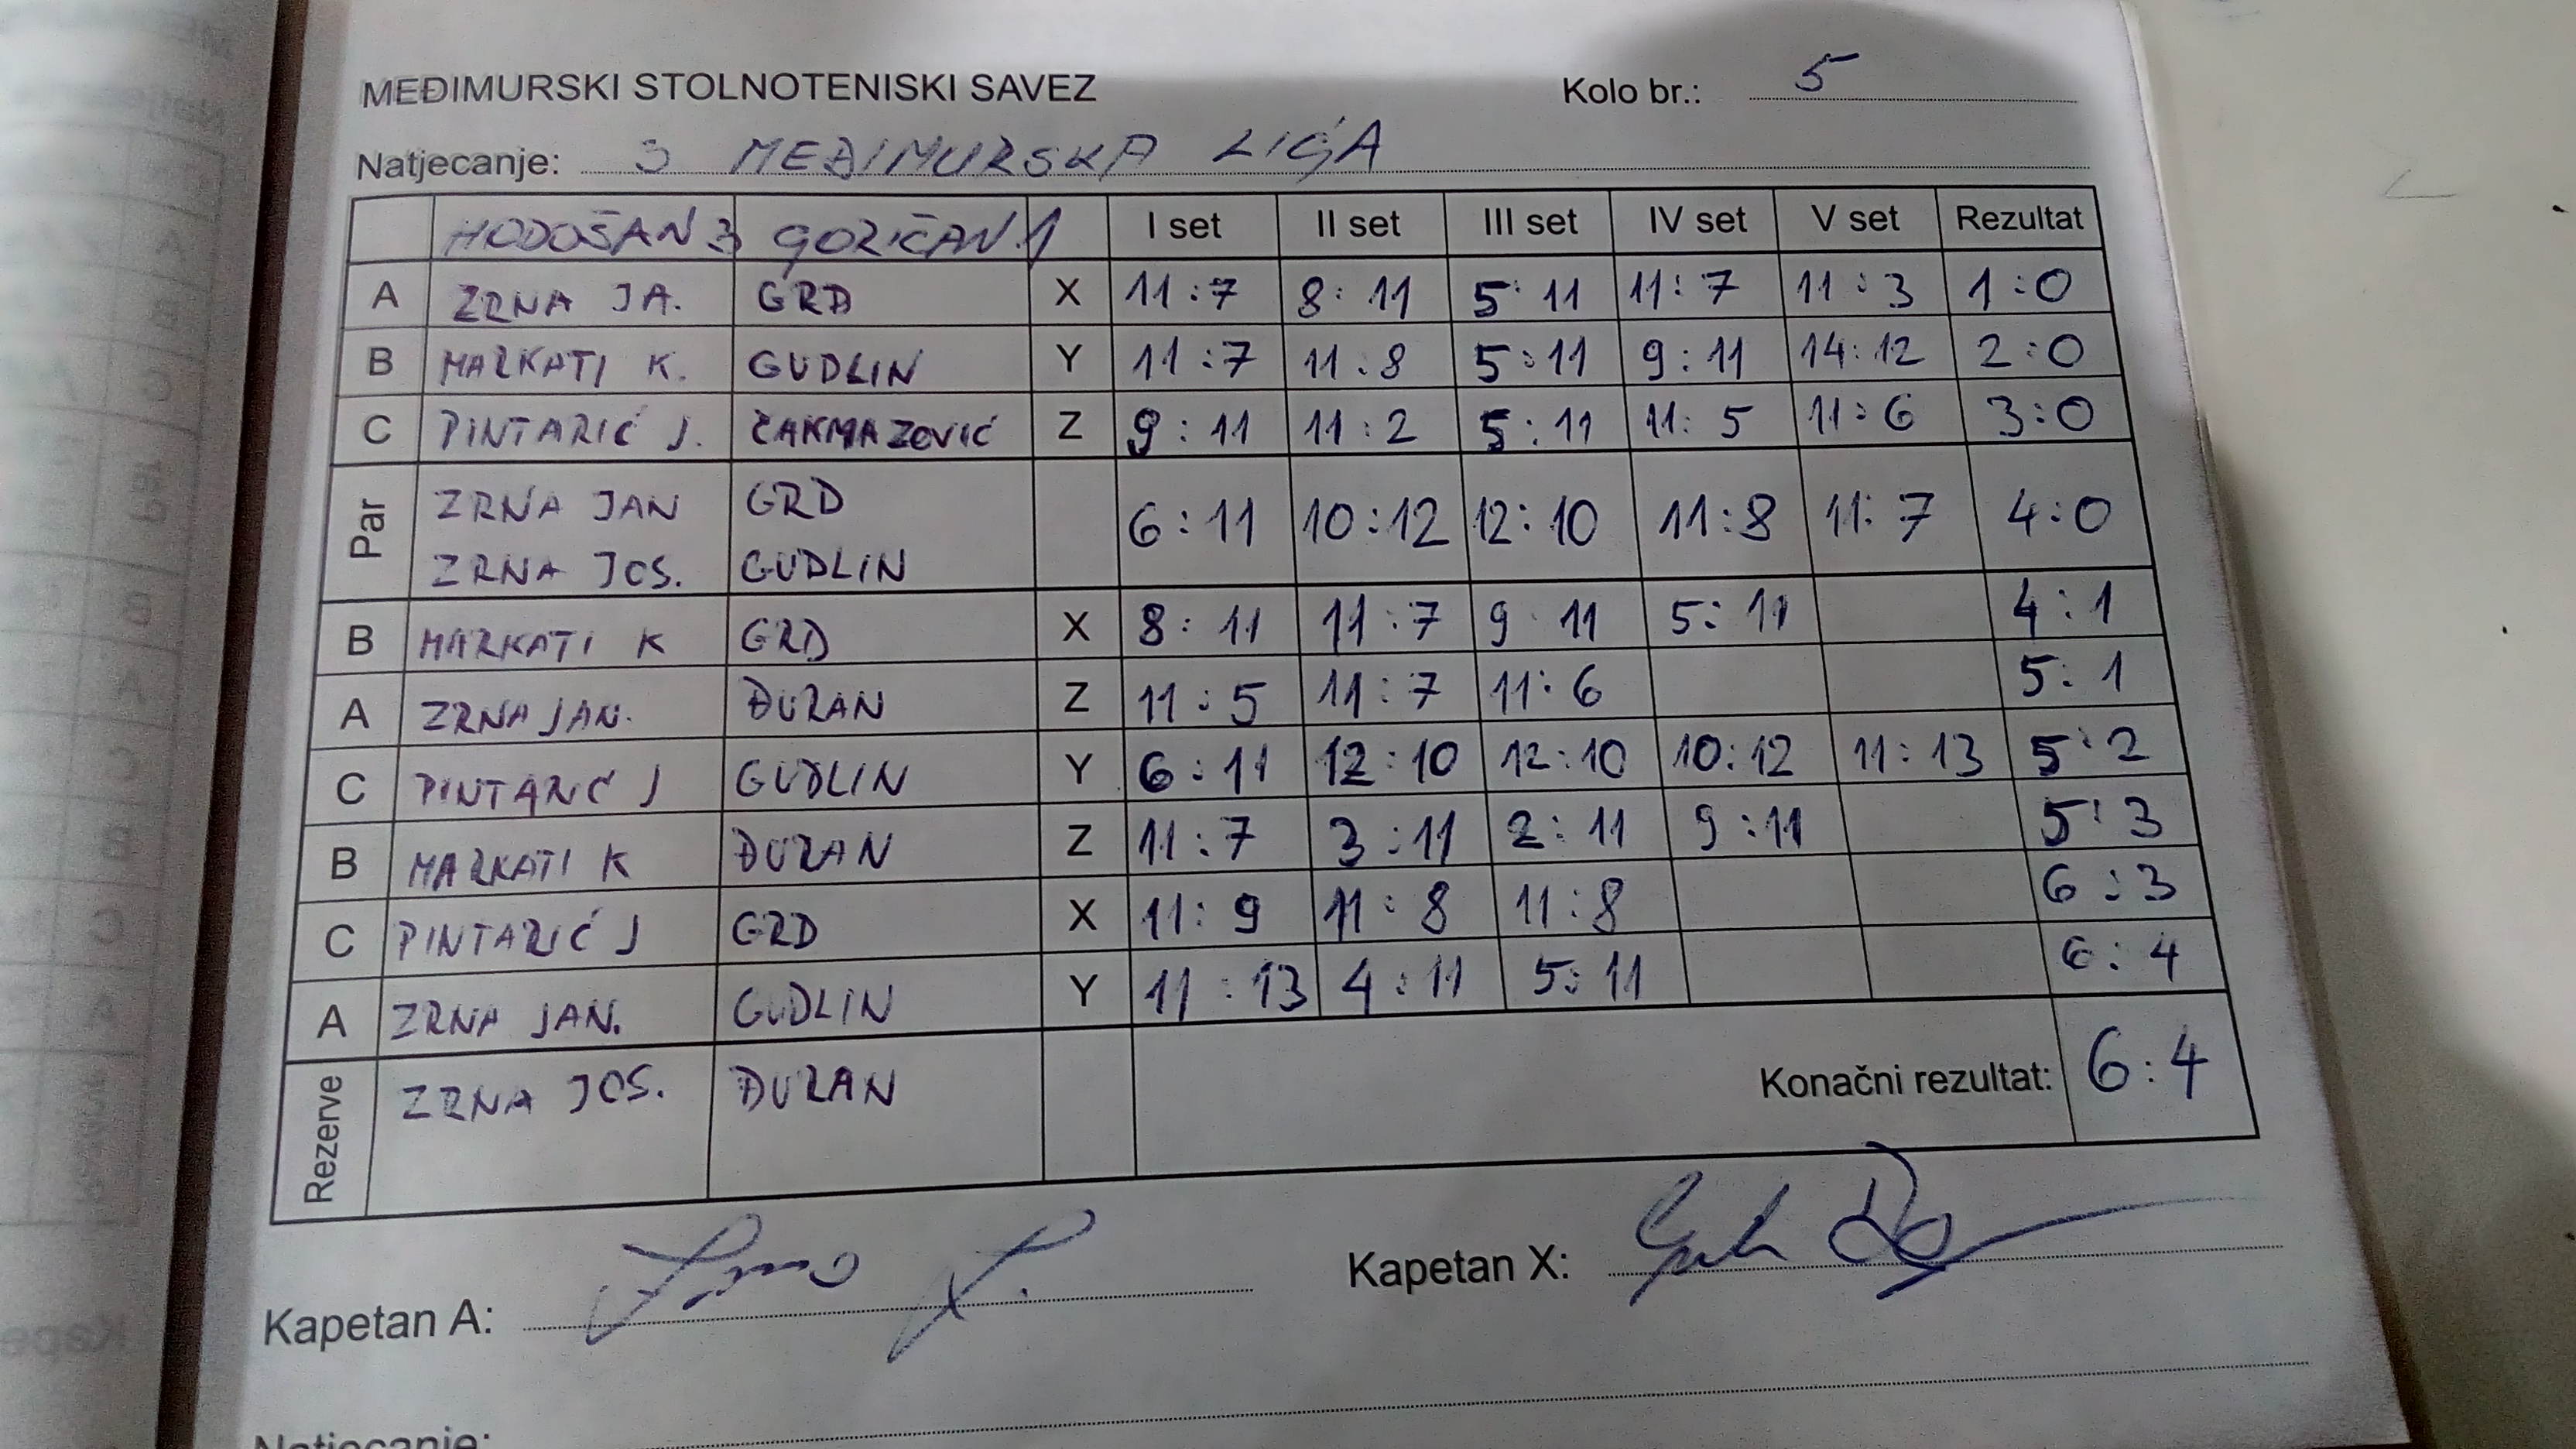 MEĐIMURSKI STOLNOTENISKI SAVEZ Kolo br.: 5
Natjecanje: 3 MEĐIMURSKA LIGA
HODOŠAN 3 GORIČAN 1 I set II set III set IV set V set Rezultat
A ZRNA JA. GRD X 11:7 8:11 5:11 11:7 11:3 1:0
B MARKATI K. GUDLIN Y 11:7 11:8 5:11 9:11 14:12 2:0
C PINTARIĆ J. ČAKMAZOVIĆ Z 9:11 11:2 5:11 11:5 11:6 3:0
Par ZRNA JAN GRD 6:11 10:12 12:10 11:8 11:7 4:0
ZRNA JOS. GUDLIN
B MARKATI K GRD X 8:11 11:7 9:11 5:11 4:1
A ZRNA JAN. ĐURAN Z 11:5 11:7 11:6 5:1
C PINTARIĆ J GUDLIN Y 6:11 12:10 12:10 10:12 11:13 5:2
B MARKATI K ĐURAN Z 11:7 3:11 2:11 9:11 5:3
C PINTARIĆ J GRD X 11:9 11:8 11:8 6:3
A ZRNA JAN. GUDLIN Y 11:13 4:11 5:11 6:4
Rezerve ZRNA JOS. ĐURAN Konačni rezultat: 6:4
Kapetan A: Kapetan X:
Natjecanje: